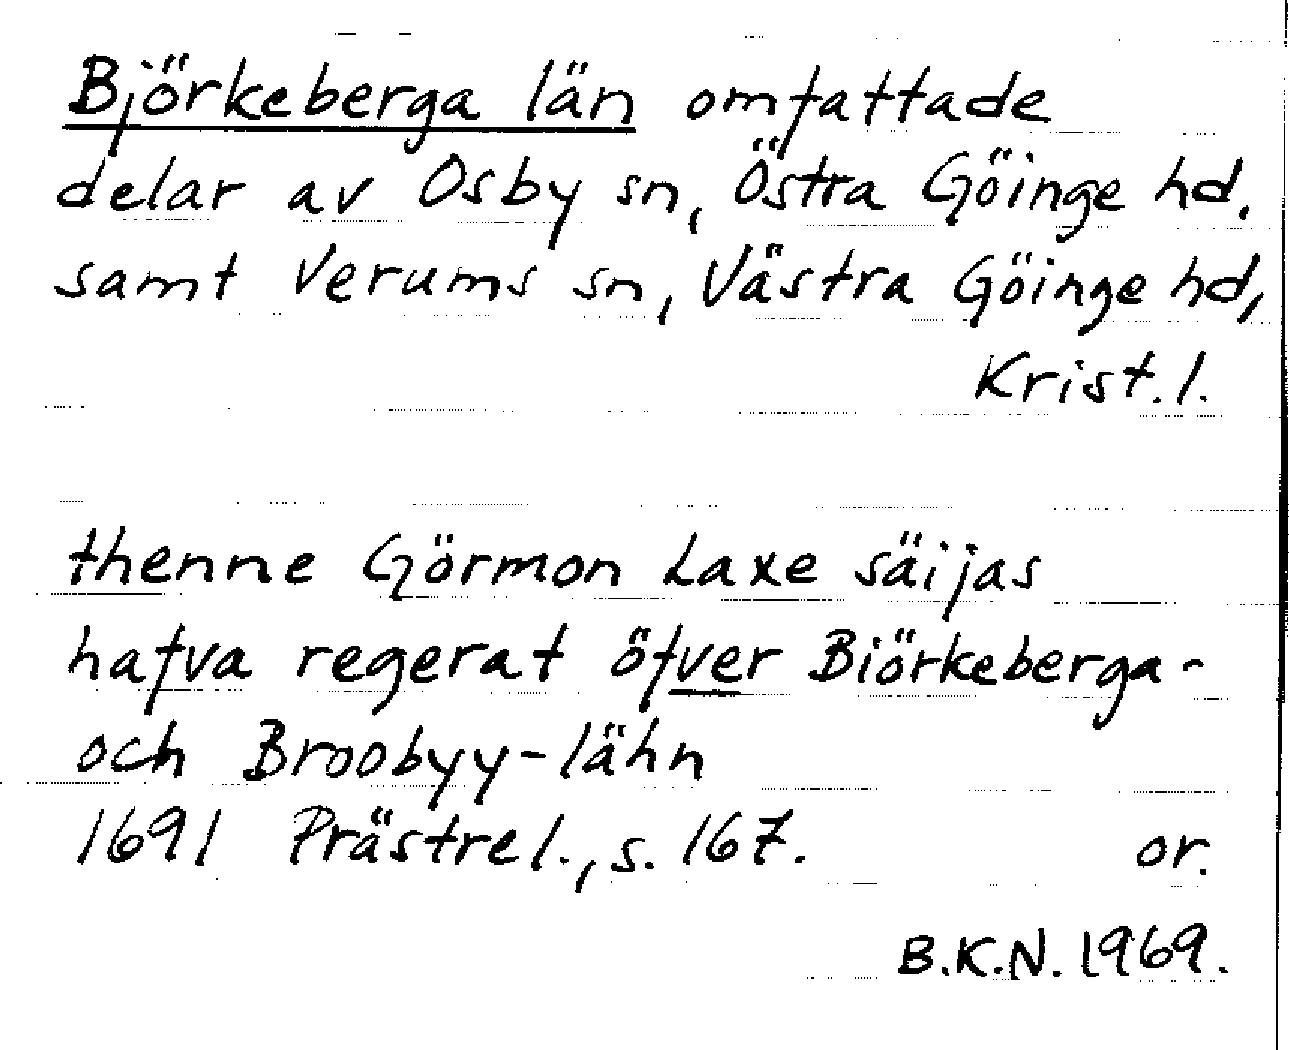 Björkeberga län omfattade
delar av Osby sn, Östra Göinge hd.
samt Verums sn, Västra Göinge hd,
Krist. l.
thenne Görmon Laxe säijas
hafva regerat öfver Biörkeberga-
och Broobyy-lähn
1691 Prästrel., s. 167. or.
B.K.N. 1969.